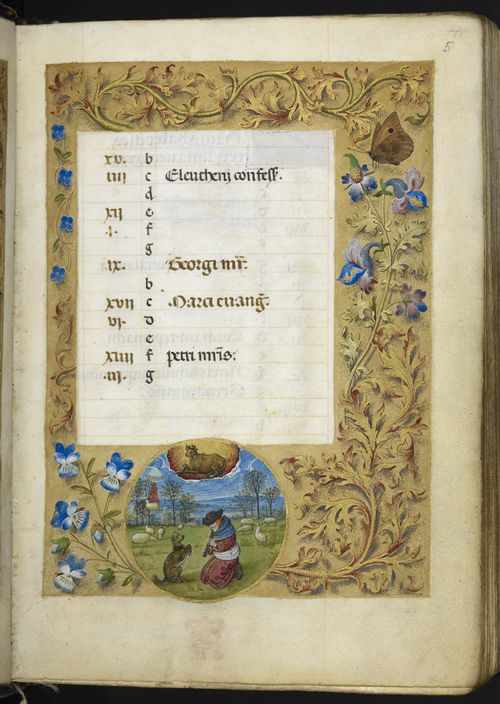 5
xv. b
iiii c Eleutherij confess.
d
xii e
.i. f
g
ix. Georgi mr̄.
b
xvii c Marci euang̃.
vi. d
e
xiiii f petri mr̄is:
.iii. g